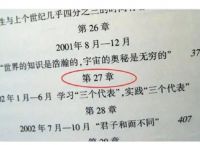 生与上个世纪几乎四分之三的时间
第 26 章
2001 年 8 月—12 月
“世界的知识是浩瀚的,宇宙的奥秘是无穷的”
第 27 章
02 年 1 月—6 月 学习“三个代表”,实践“三个代表”
第 28 章
2002 年 7 月—10 月 “君子和而不同” 407
第 29 章